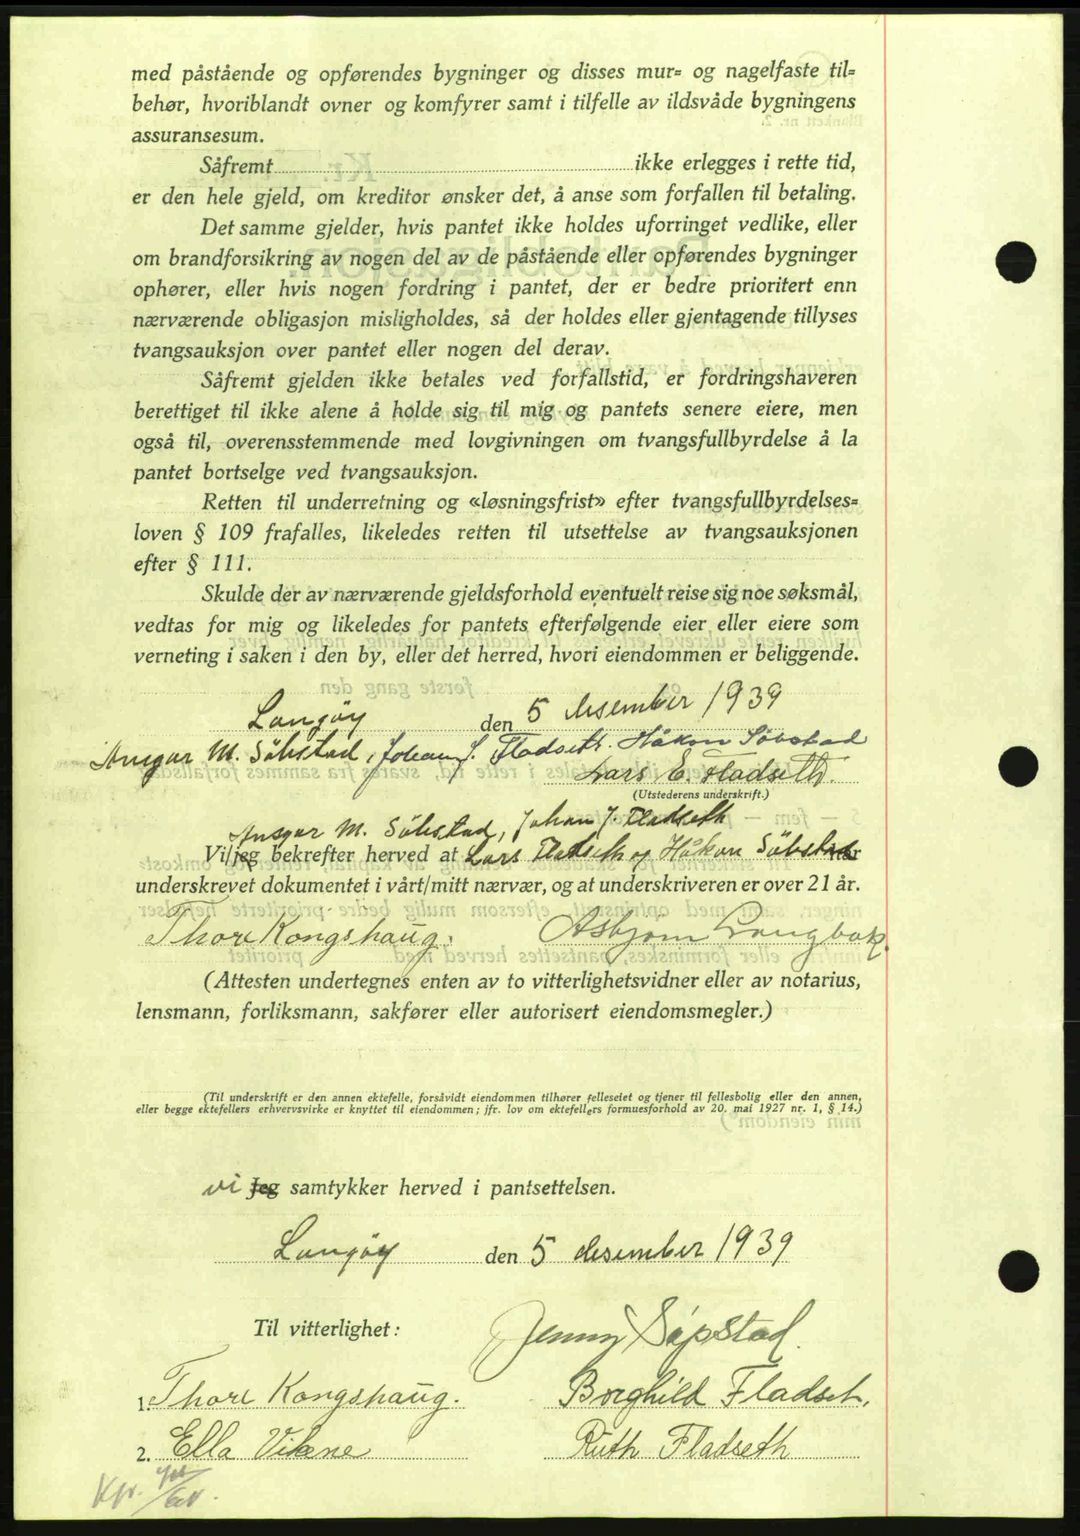 med påstående og opførendes bygninger og disses mur= og nagelfaste til=
behør, hvoriblandt ovner og komfyrer samt i tilfelle av ildsvåde bygningens
assuransesum.
Såfremt ikke erlegges i rette tid,
er den hele gjeld, om kreditor ønsker det, å anse som forfallen til betaling.
Det samme gjelder, hvis pantet ikke holdes uforringet vedlike, eller
om brandforsikring av nogen del av de påstående eller opførendes bygninger
ophører, eller hvis nogen fordring i pantet, der er bedre prioritert enn
nærværende obligasjon misligholdes, så der holdes eller gjentagende tillyses
tvangsauksjon over pantet eller nogen del derav.
Såfremt gjelden ikke betales ved forfallstid, er fordringshaveren
berettiget til ikke alene å holde sig til mig og pantets senere eiere, men
også til, overensstemmende med lovgivningen om tvangsfullbyrdelse å la
pantet bortselge ved tvangsauksjon.
Retten til underretning og «løsningsfrist» efter tvangsfullbyrdelses=
loven § 109 frafalles, likeledes retten til utsettelse av tvangsauksjonen
efter § 111.
Skulde der av nærværende gjeldsforhold eventuelt reise sig noe søksmål,
vedtas for mig og likeledes for pantets efterfølgende eier eller eiere som
verneting i saken i den by, eller det herred, hvori eiendommen er beliggende.
Langöy den 5 desember 1939
Ansgar M. Söbstad, Johan J. Fladseth. Håkon Söbstad
Lars E. Fladseth.
(Utstederens underskrift.)
Ansgar M. Söbstad, Johan J. Fladseth
Vi/jeg bekrefter herved at Lars Fladseth og Håkon Söbstad har
underskrevet dokumentet i vårt/mitt nærvær, og at underskriveren er over 21 år.
Thore Kongshaug. Asbjörn Langbak.
(Attesten undertegnes enten av to vitterlighetsvidner eller av notarius,
lensmann, forliksmann, sakfører eller autorisert eiendomsmegler.)
(Til underskrift er den annen ektefelle, forsåvidt eiendommen tilhører felleseiet og tjener til fellesbolig eller den annen,
eller begge ektefellers erhvervsvirke er knyttet til eiendommen; jfr. lov om ektefellers formuesforhold av 20. mai 1927 nr. 1, § 14.)
vi Jeg samtykker herved i pantsettelsen.
Langöy den 5 desember 1939
Til vitterlighet: Jenny Söpstad.
1. Thore Kongshaug. Borghild Fladset.
2. Ella Vikene Ruth Fladseth